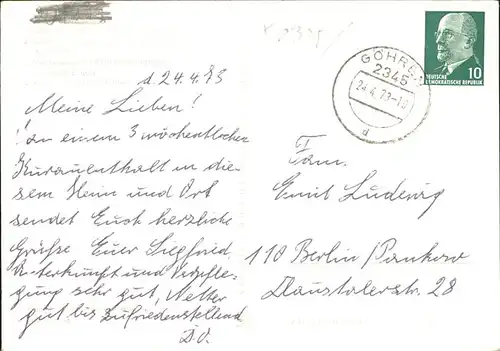 d 24.4.73
Meine Lieben!
Zu einem 3 wöchentlichen
Kuraufenthalt in die-
sem Heim und Ort
sendet Euch herzliche
Grüße Euer Siegfried
Unterkunft und Verpfle-
gung sehr gut, Wetter
gut bis zufriedenstellend
D.O.
GÖHREN
2345
24.4.73-10
d
10
DEUTSCHE
DEMOKRATISCHE REPUBLIK
Fam.
Emil Ludwig
110 Berlin/Pankow
Klaustalerstr. 28